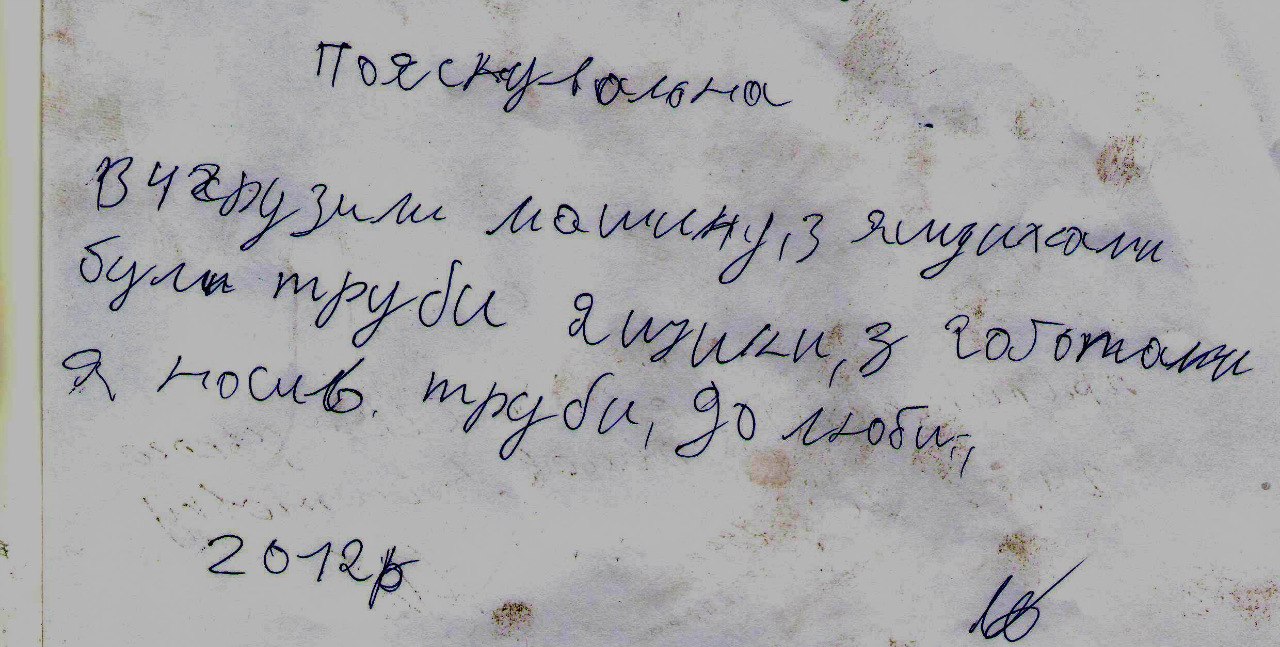 Пояскувальна
Вчгрузили машину, з ящиками
були труби ящики, з боботами
Я носив. труби, до люби,,
2012р